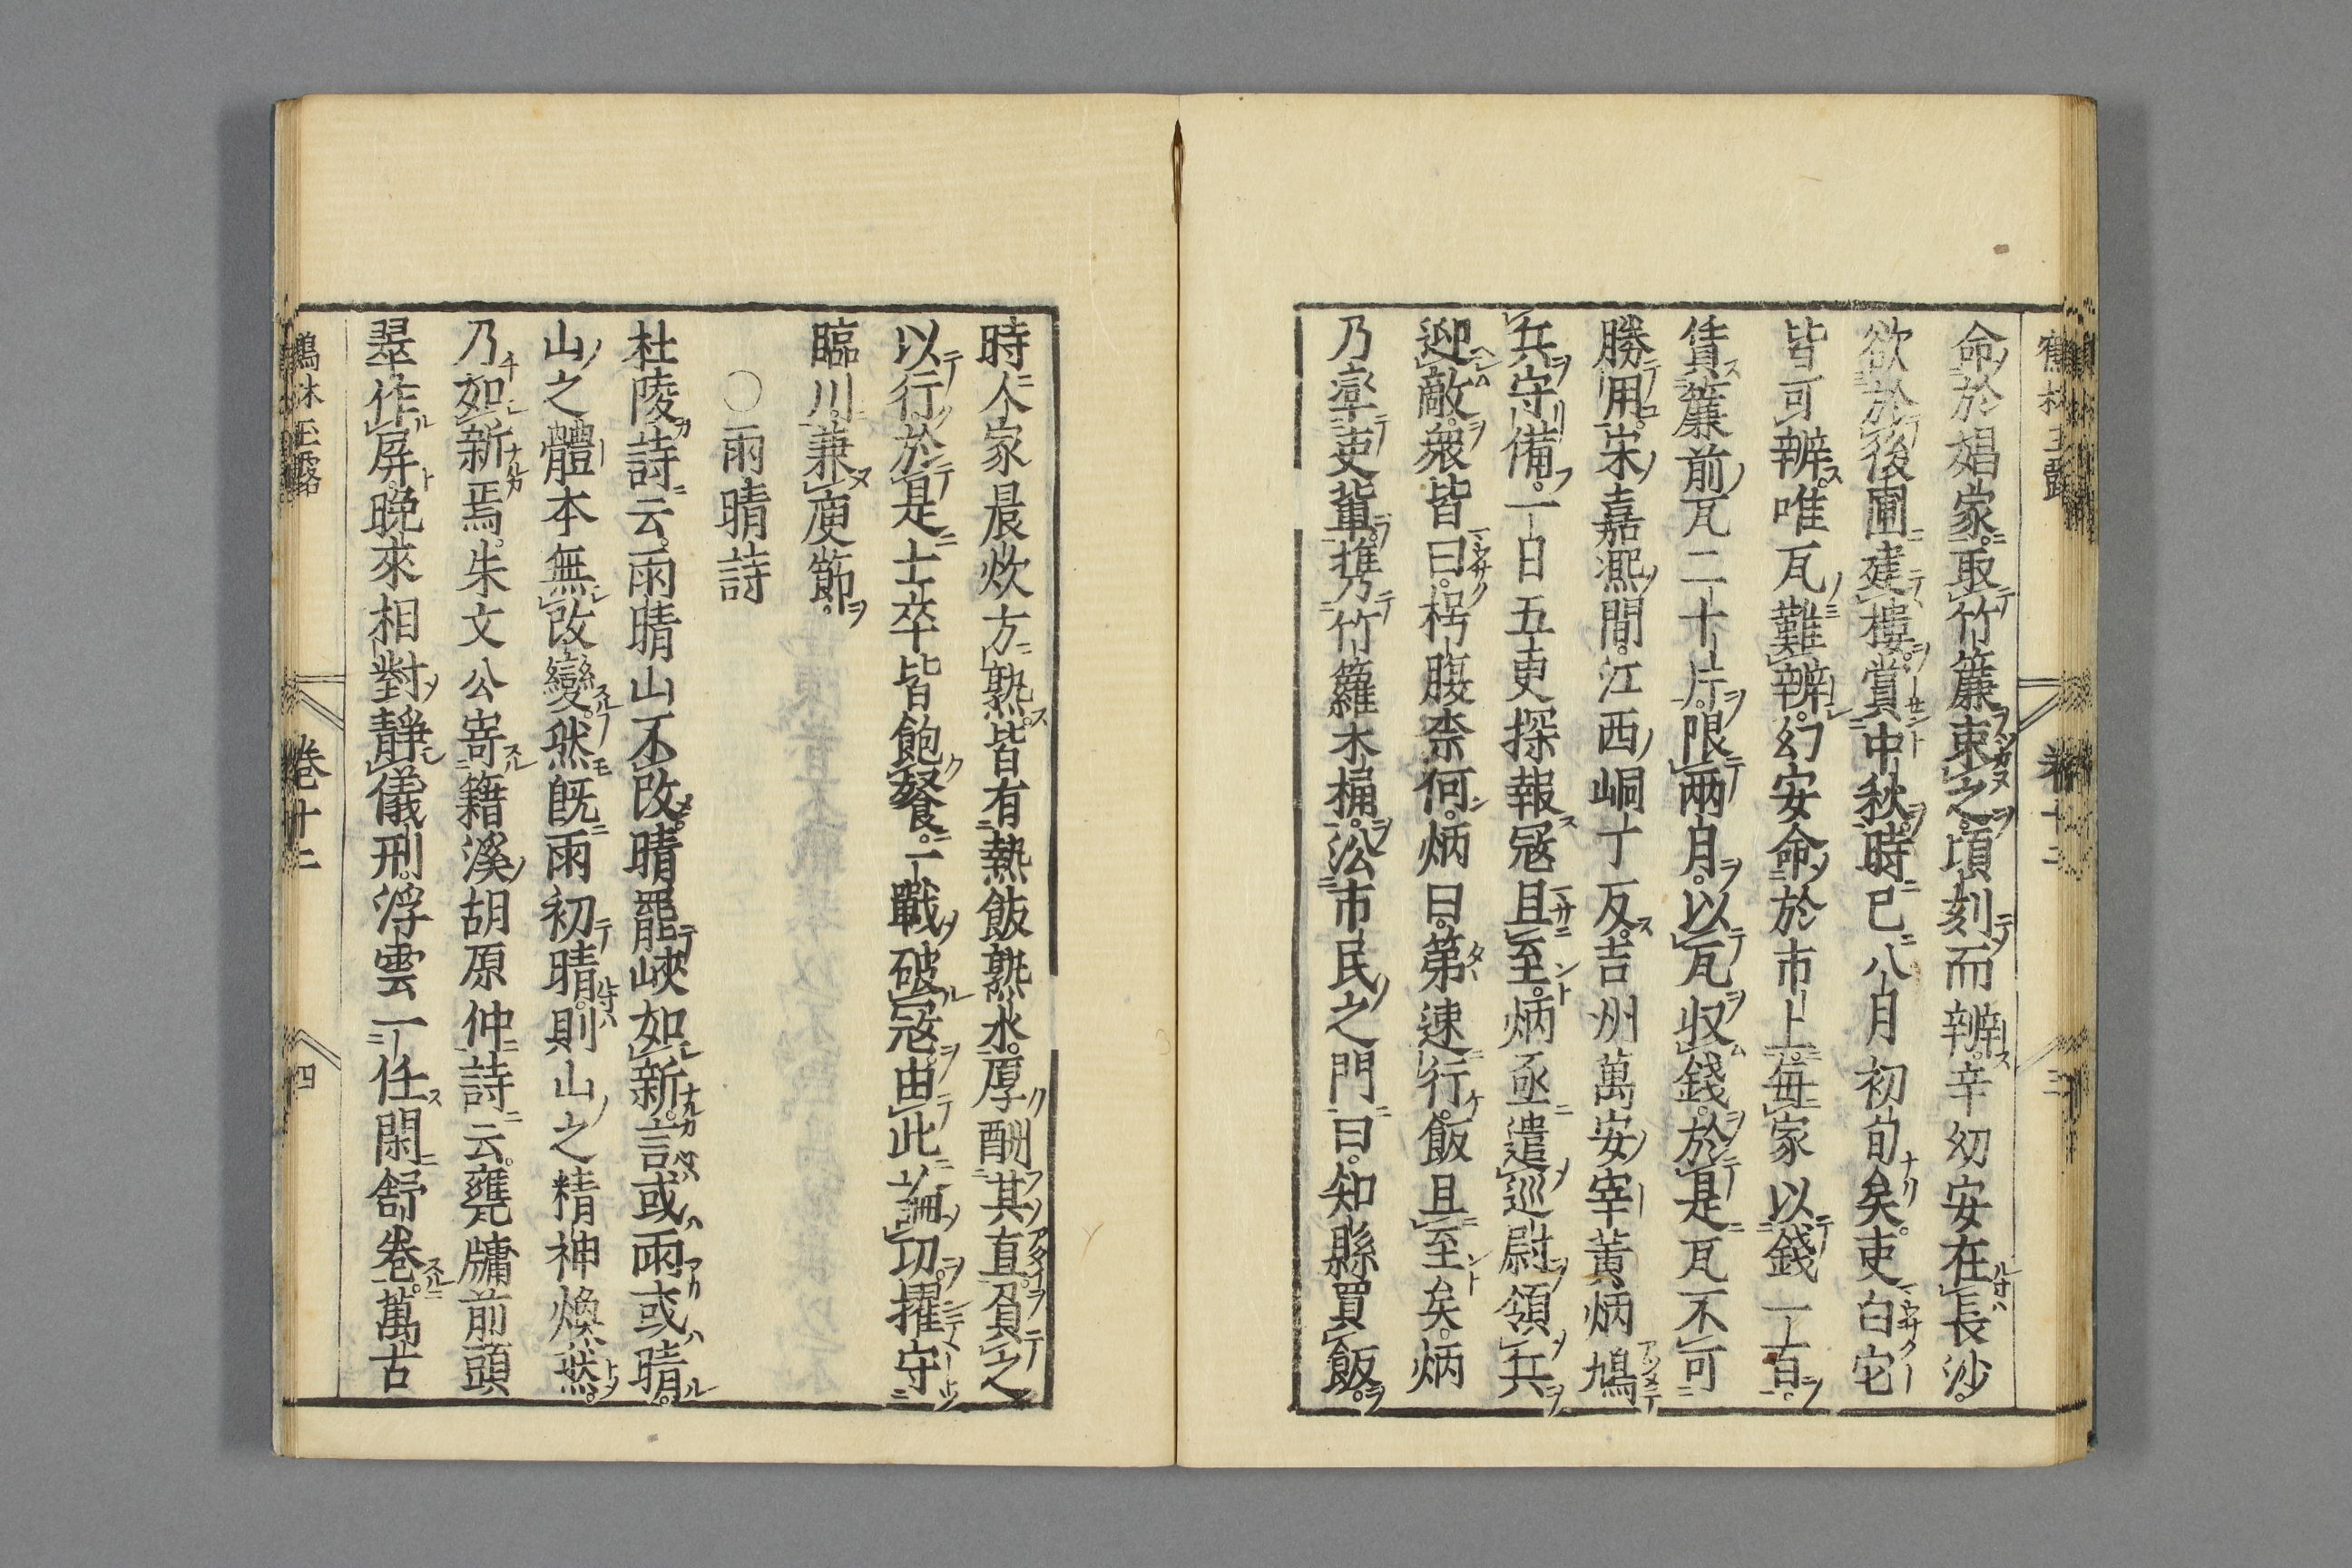 命於娼家取竹簾束之頃刻而辨辛幼安在長沙
欲於後圃建樓賞中秋時已八月初旬矣吏白它
皆可辨唯瓦難辨幼安命於市上每家以錢一百
賃簾前瓦二十片限兩月以瓦収錢於是瓦不可
勝用宋嘉熈間江西峒丁反吉州萬安宰黃炳鳩
兵守備一日五更探報冦且至炳亟遣巡尉領兵
迎敵衆皆曰枵腹柰何炳曰第速行飯且至矣炳
乃率吏輩携竹籮木桶沿市民之門曰知縣買飯
時人家晨炊方熟皆有熱飯熟水厚酬其直負之
以行於是士卒皆飽餐一戰破冦由此論功擢守
臨川兼庾節
〇雨晴詩
杜陵詩云雨晴山不改晴罷峽如新言或雨或晴
山之體本無改變然既雨初晴則山之精神煥然
乃如新焉朱文公寄籍溪胡原仲詩云甕牖前頭
翠作屏晩來相對靜儀刑浮雲一任閑舒卷萬古
鶴林玉露 卷十二 四